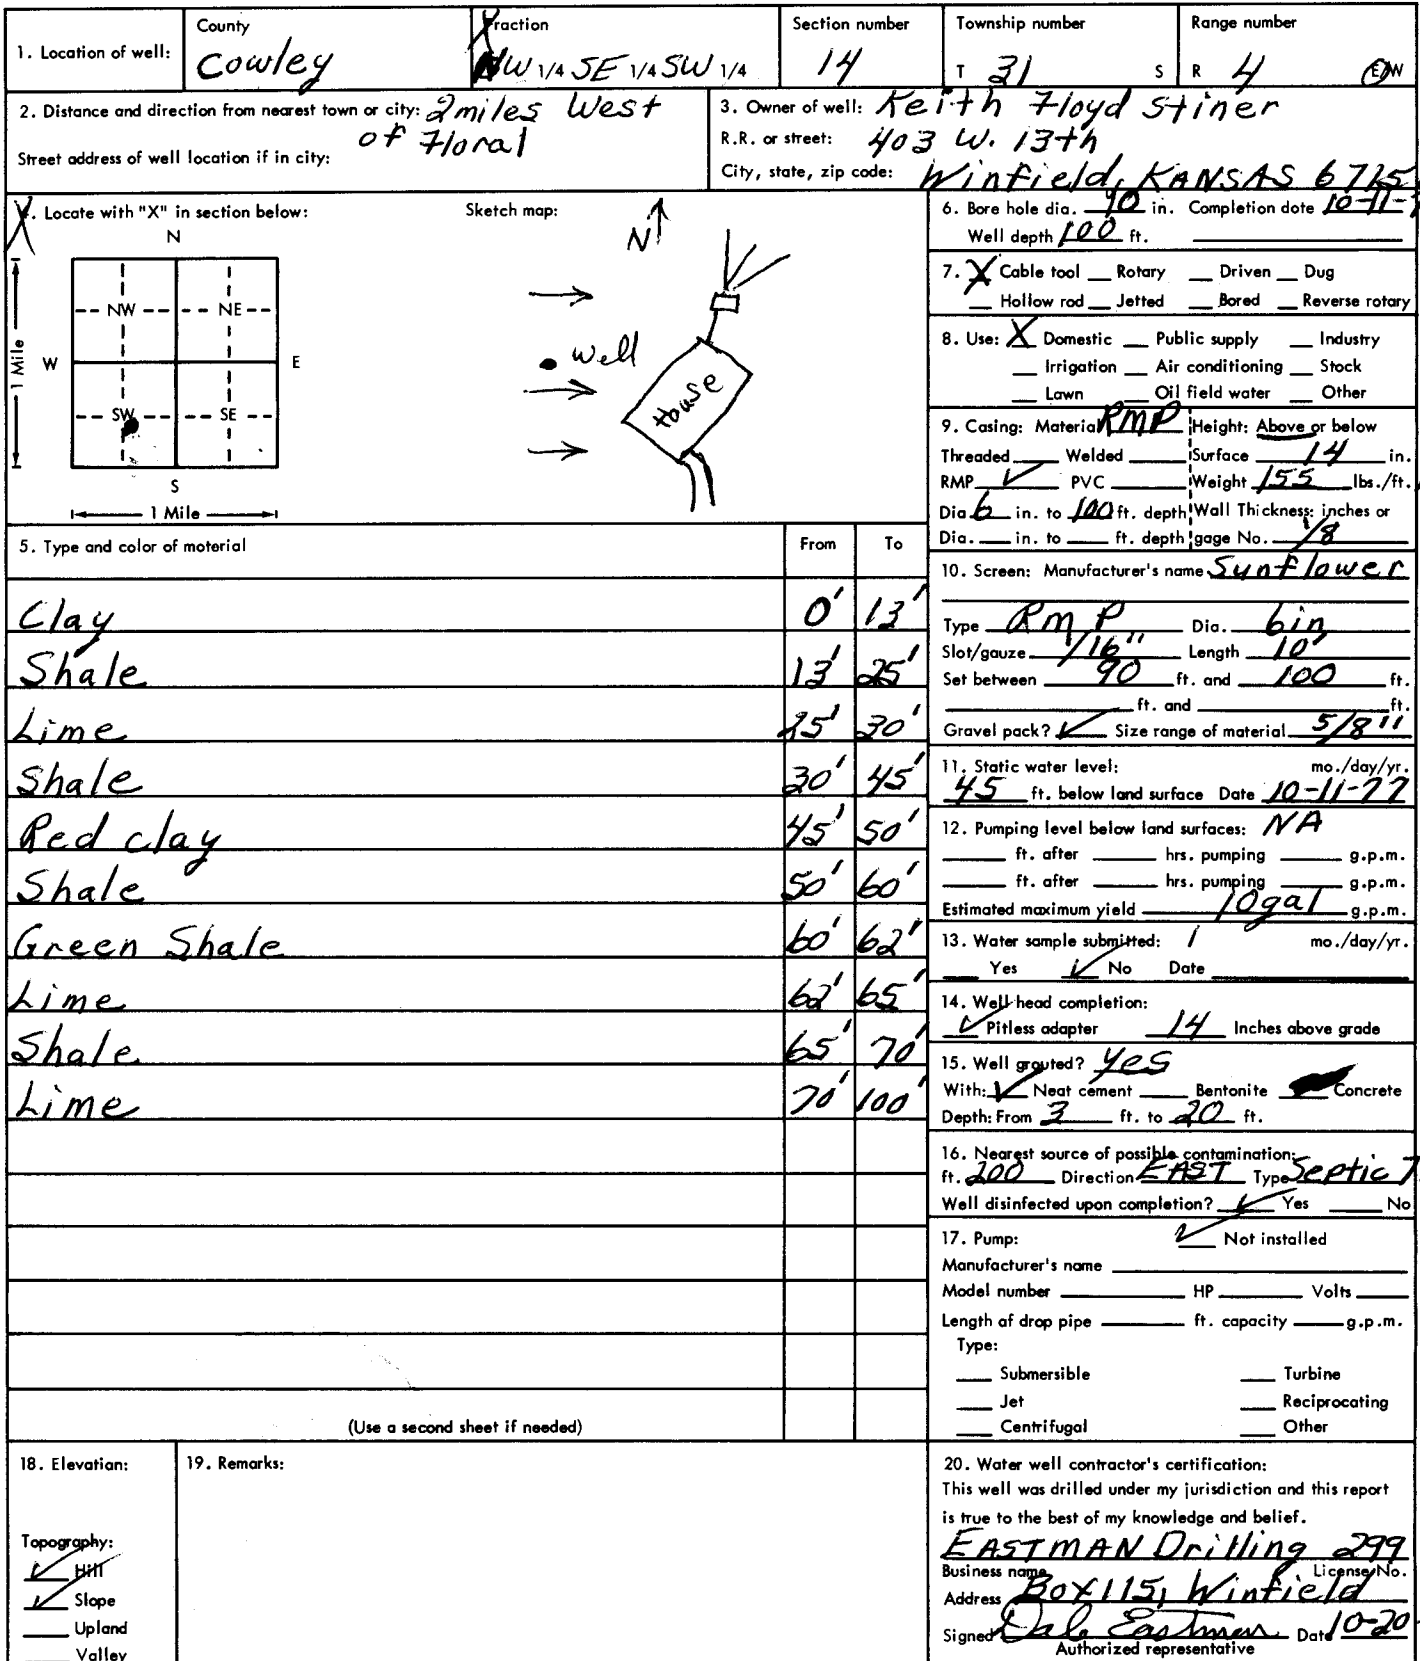 1. Location of well: County Cowley Fraction NW 1/4 SE 1/4 SW 1/4 Section number 14 Township number T 31 S Range number R 4 E/W
2. Distance and direction from nearest town or city: 2 miles West of Floral
Street address of well location if in city:
3. Owner of well: Keith Floyd Stiner
R.R. or street: 403 W. 13th
City, state, zip code: Winfield, KANSAS 6715
4. Locate with "X" in section below:
N
NW NE
W E
SW SE
S
1 Mile
1 Mile
Sketch map:
N
Well
House
5. Type and color of material From To
Clay 0' 13'
Shale 13' 25'
Lime 25' 30'
Shale 30' 45'
Red clay 45' 50'
Shale 50' 60'
Green Shale 60' 62'
Lime 62' 65'
Shale 65' 70'
Lime 70' 100'
(Use a second sheet if needed)
6. Bore hole dia. 10 in. Completion date 10-11-
Well depth 100 ft.
7. X Cable tool Rotary Driven Dug
Hollow rod Jetted Bored Reverse rotary
8. Use: X Domestic Public supply Industry
Irrigation Air conditioning Stock
Lawn Oil field water Other
9. Casing: Material RMP Height: Above or below
Threaded Welded Surface 14 in.
RMP ✓ PVC Weight 155 lbs./ft.
Dia. 6 in. to 100 ft. depth Wall Thickness: inches or
Dia. in. to ft. depth gage No. 1/8
10. Screen: Manufacturer's name Sunflower
Type RMP Dia. 6in
Slot/gauze 1/16" Length 10'
Set between 90 ft. and 100 ft.
ft. and ft.
Gravel pack? ✓ Size range of material 5/8"
11. Static water level: mo./day/yr.
45 ft. below land surface Date 10-11-77
12. Pumping level below land surfaces: NA
ft. after hrs. pumping g.p.m.
ft. after hrs. pumping g.p.m.
Estimated maximum yield 10gal g.p.m.
13. Water sample submitted: mo./day/yr.
Yes ✓ No Date
14. Well head completion:
✓ Pitless adapter 14 Inches above grade
15. Well grouted? yes
With: ✓ Neat cement Bentonite Concrete
Depth: From 3 ft. to 20 ft.
16. Nearest source of possible contamination:
ft. 200 Direction EAST Type Septic T
Well disinfected upon completion? ✓ Yes No
17. Pump: ✓ Not installed
Manufacturer's name
Model number HP Volts
Length of drop pipe ft. capacity g.p.m.
Type:
Submersible Turbine
Jet Reciprocating
Centrifugal Other
18. Elevation:
Topography:
✓ Hill
✓ Slope
Upland
Valley
19. Remarks:
20. Water well contractor's certification:
This well was drilled under my jurisdiction and this report
is true to the best of my knowledge and belief.
EASTMAN Drilling 299
Business name License No.
Address Box 115, Winfield
Signed Dale Eastman Date 10-20
Authorized representative